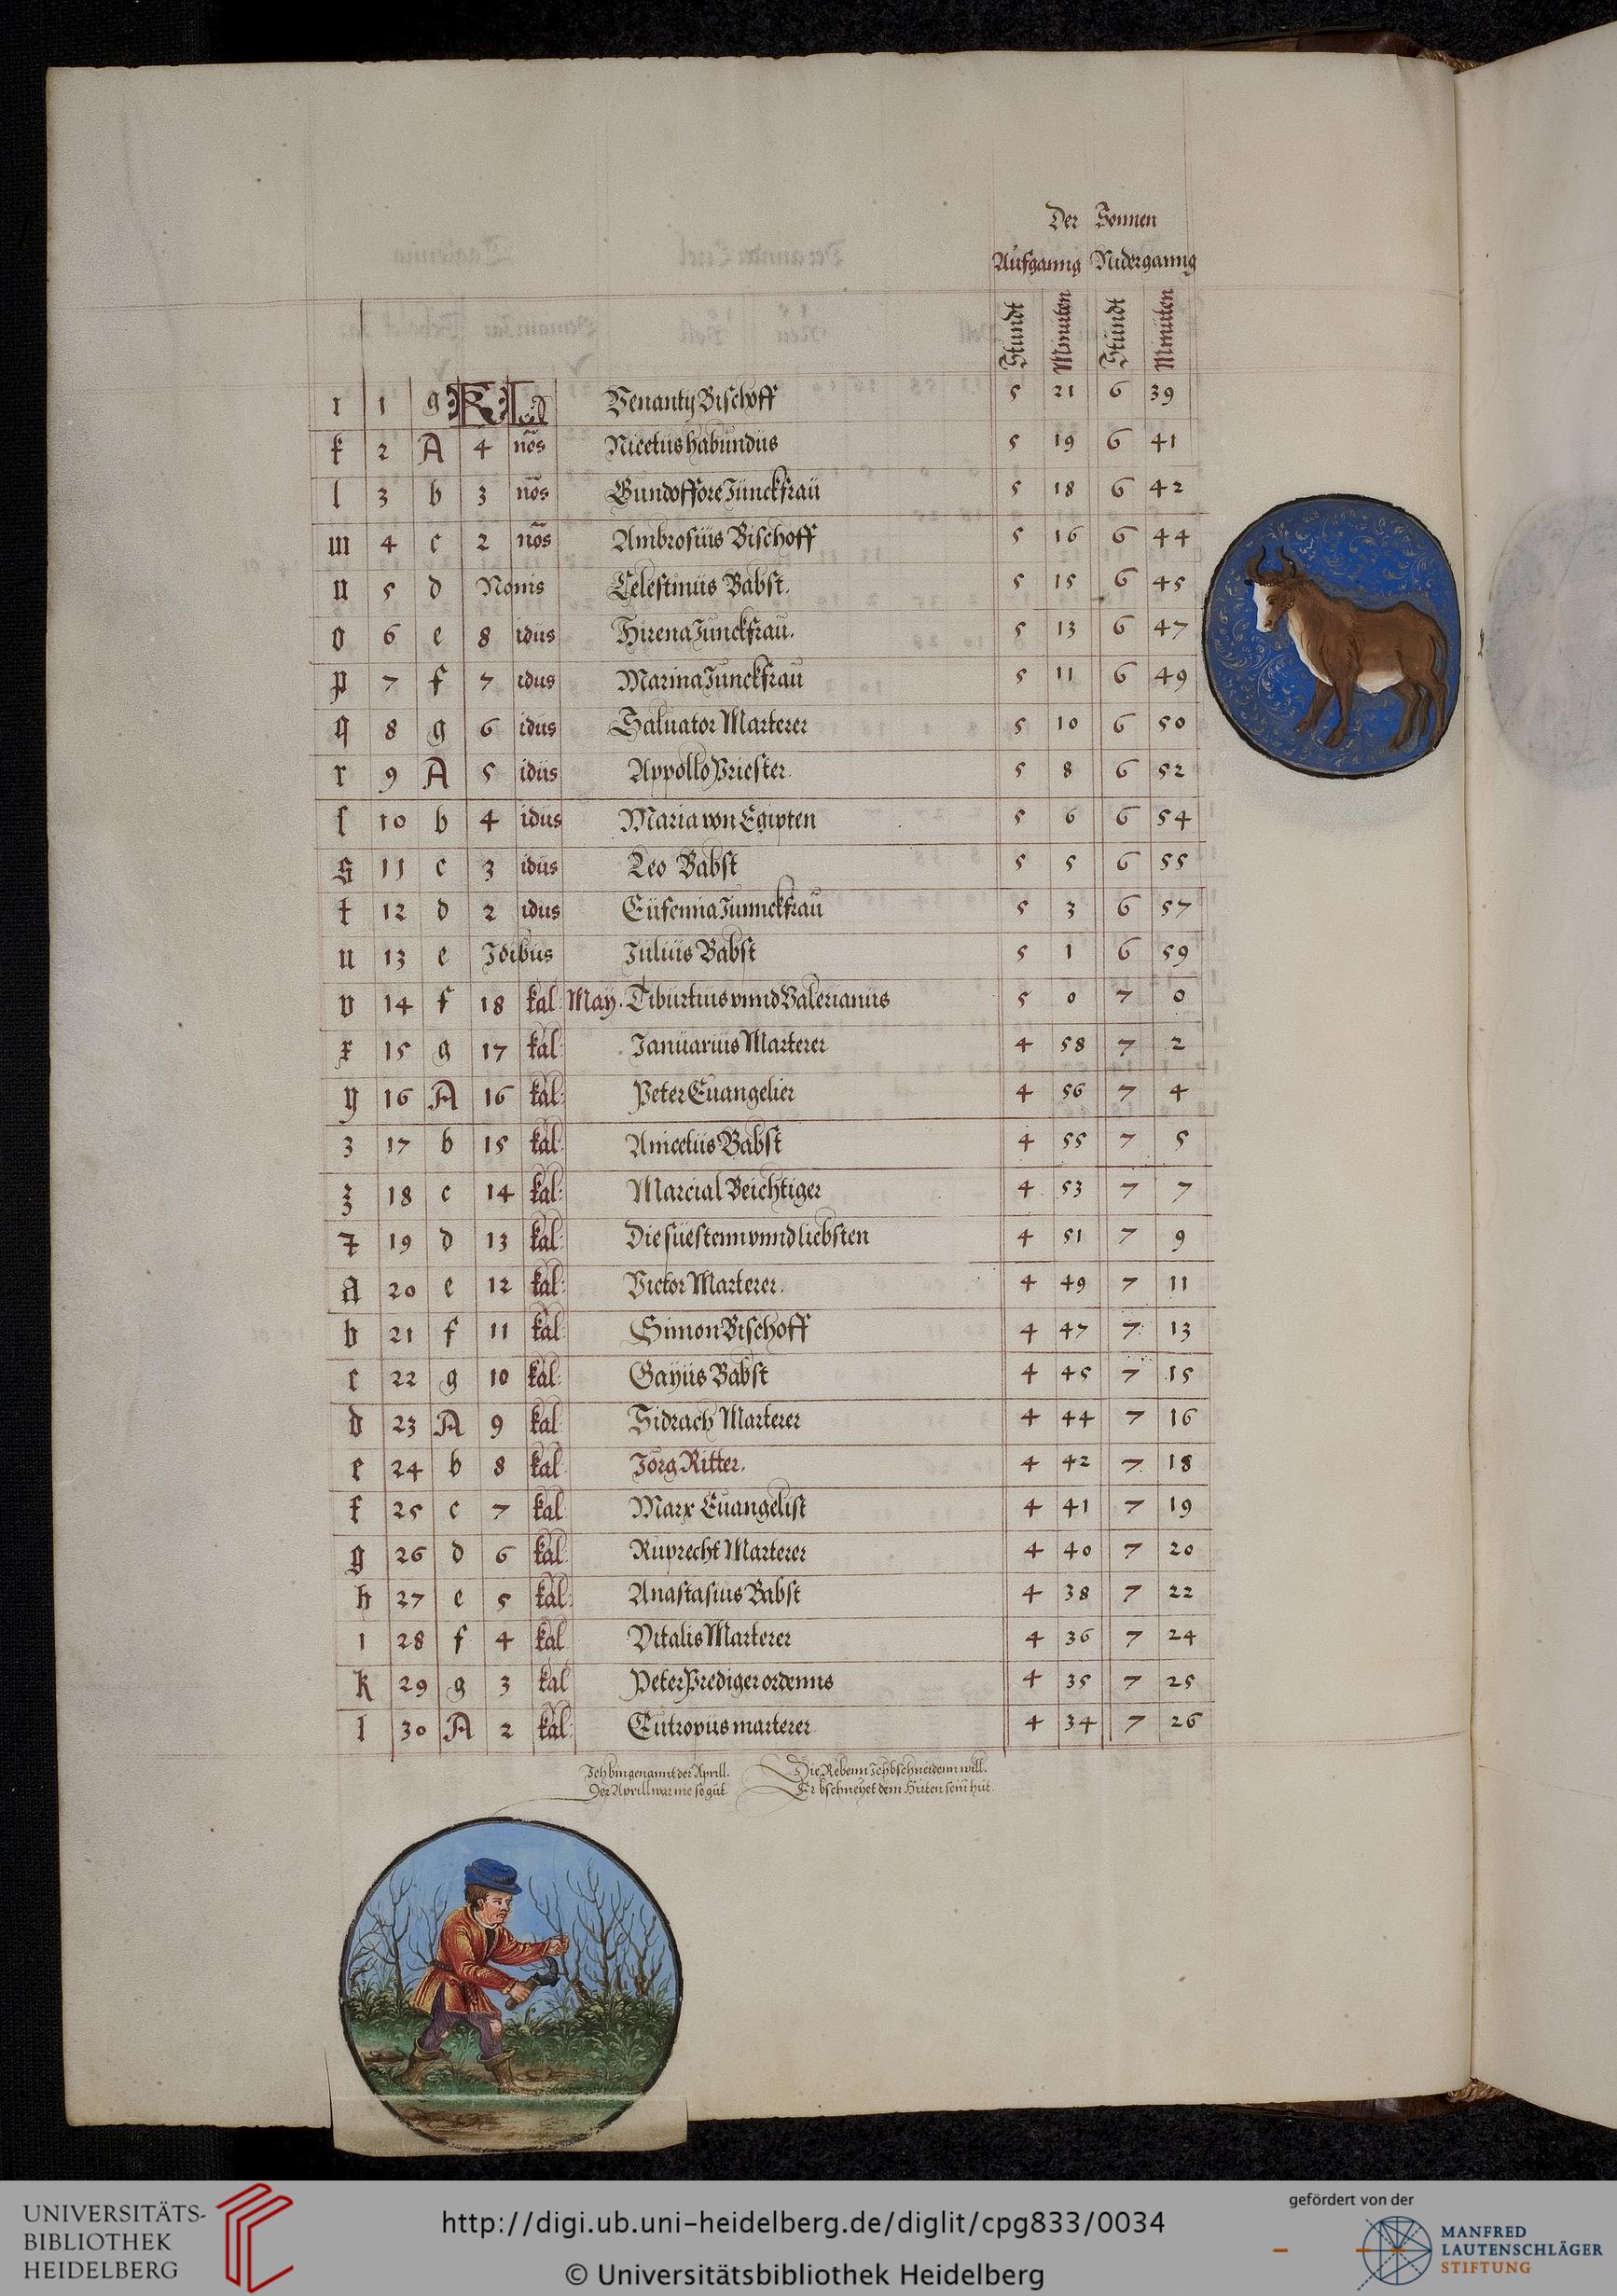 Der Sonnen
Aufganng Niderganng
Stundt Minuten Stundt Minuten
i 1 g KL Venantij Bischoff 5 21 6 39
k 2 A 4 nōs Nicetius habundus 5 19 6 41
l 3 b 3 nōs Gundoffore Junckfrau 5 18 6 42
m 4 c 2 nōs Ambrosius Bischoff 5 16 6 44
n 5 d Nonis Celestinus Babst. 5 15 6 45
o 6 e 8 idus Hirena Junckfrau. 5 13 6 47
p 7 f 7 idus Marina Junckfrau 5 11 6 49
q 8 g 6 idus Saluator Marterer 5 10 6 50
r 9 A 5 idus Appollo Priester. 5 8 6 52
ſ 10 b 4 idus Maria von Egipten 5 6 6 54
s 11 c 3 idus Leo Babst 5 5 6 55
t 12 d 2 idus Eufemia Junnckfrau 5 3 6 57
u 13 e Idibus Julius Babst 5 1 6 59
v 14 f 18 kal: May. Tiburtius vnnd Valerianus 5 0 7 0
x 15 g 17 kal: Januarius Marterer 4 58 7 2
y 16 A 16 kal: Peter Euangelier 4 56 7 4
z 17 b 15 kal: Anicetus Babst 4 55 7 5
ʒ 18 c 14 kal: Marcial Beichtiger 4 53 7 7
7 19 d 13 kal: Die süestenn vnnd liebsten 4 51 7 9
a 20 e 12 kal: Victor Marterer. 4 49 7 11
b 21 f 11 kal: Simon Bischoff 4 47 7 13
c 22 g 10 kal: Gayus Babst 4 45 7 15
d 23 A 9 kal Sidrach Marterer 4 44 7 16
e 24 b 8 kal Jörg Ritter. 4 42 7 18
f 25 c 7 kal Marx Euangelist 4 41 7 19
g 26 d 6 kal Ruprecht Marterer 4 40 7 20
h 27 e 5 kal: Anastasius Babst 4 38 7 22
i 28 f 4 kal Vitalis Marterer 4 36 7 24
k 29 g 3 kal Peter Prediger ordenns 4 35 7 25
l 30 A 2 kal: Eutropius marterer. 4 34 7 26
Ich bin genannt der Aprill. Die Rebenn Ich bschneidenn will.
Der Aprill war nie so gut Er bschneyet dem Hirten sein hut.
UNIVERSITÄTS-
BIBLIOTHEK
HEIDELBERG
http://digi.ub.uni-heidelberg.de/diglit/cpg833/0034
© Universitätsbibliothek Heidelberg
gefördert von der
MANFRED
LAUTENSCHLÄGER
STIFTUNG